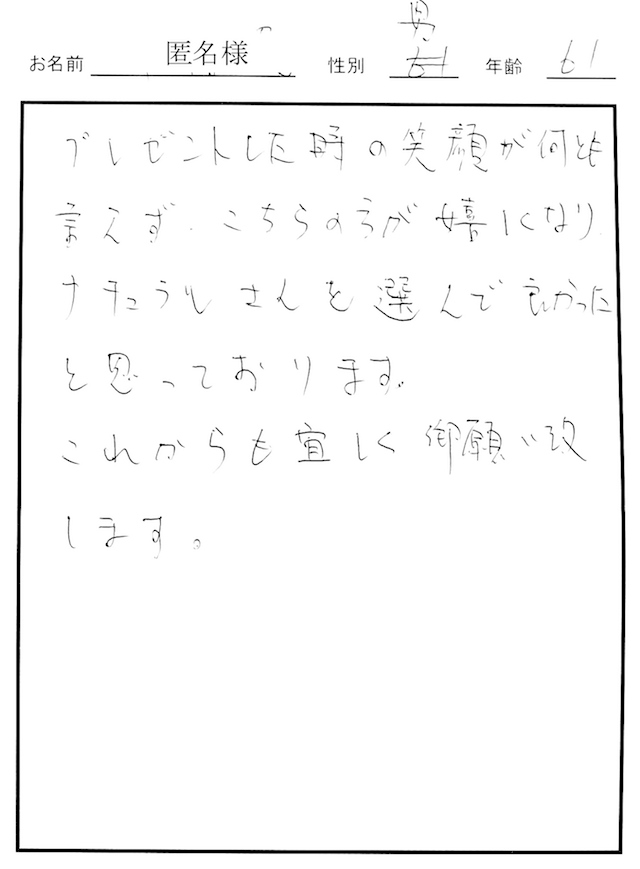 お名前 匿名様 性別 男 年齢 61
プレゼントした時の笑顔が何とも
言えず、こちらの方が嬉しくなり、
ナチュラルさんを選んで良かった
と思っております。
これからも宜しく御願い致
します。